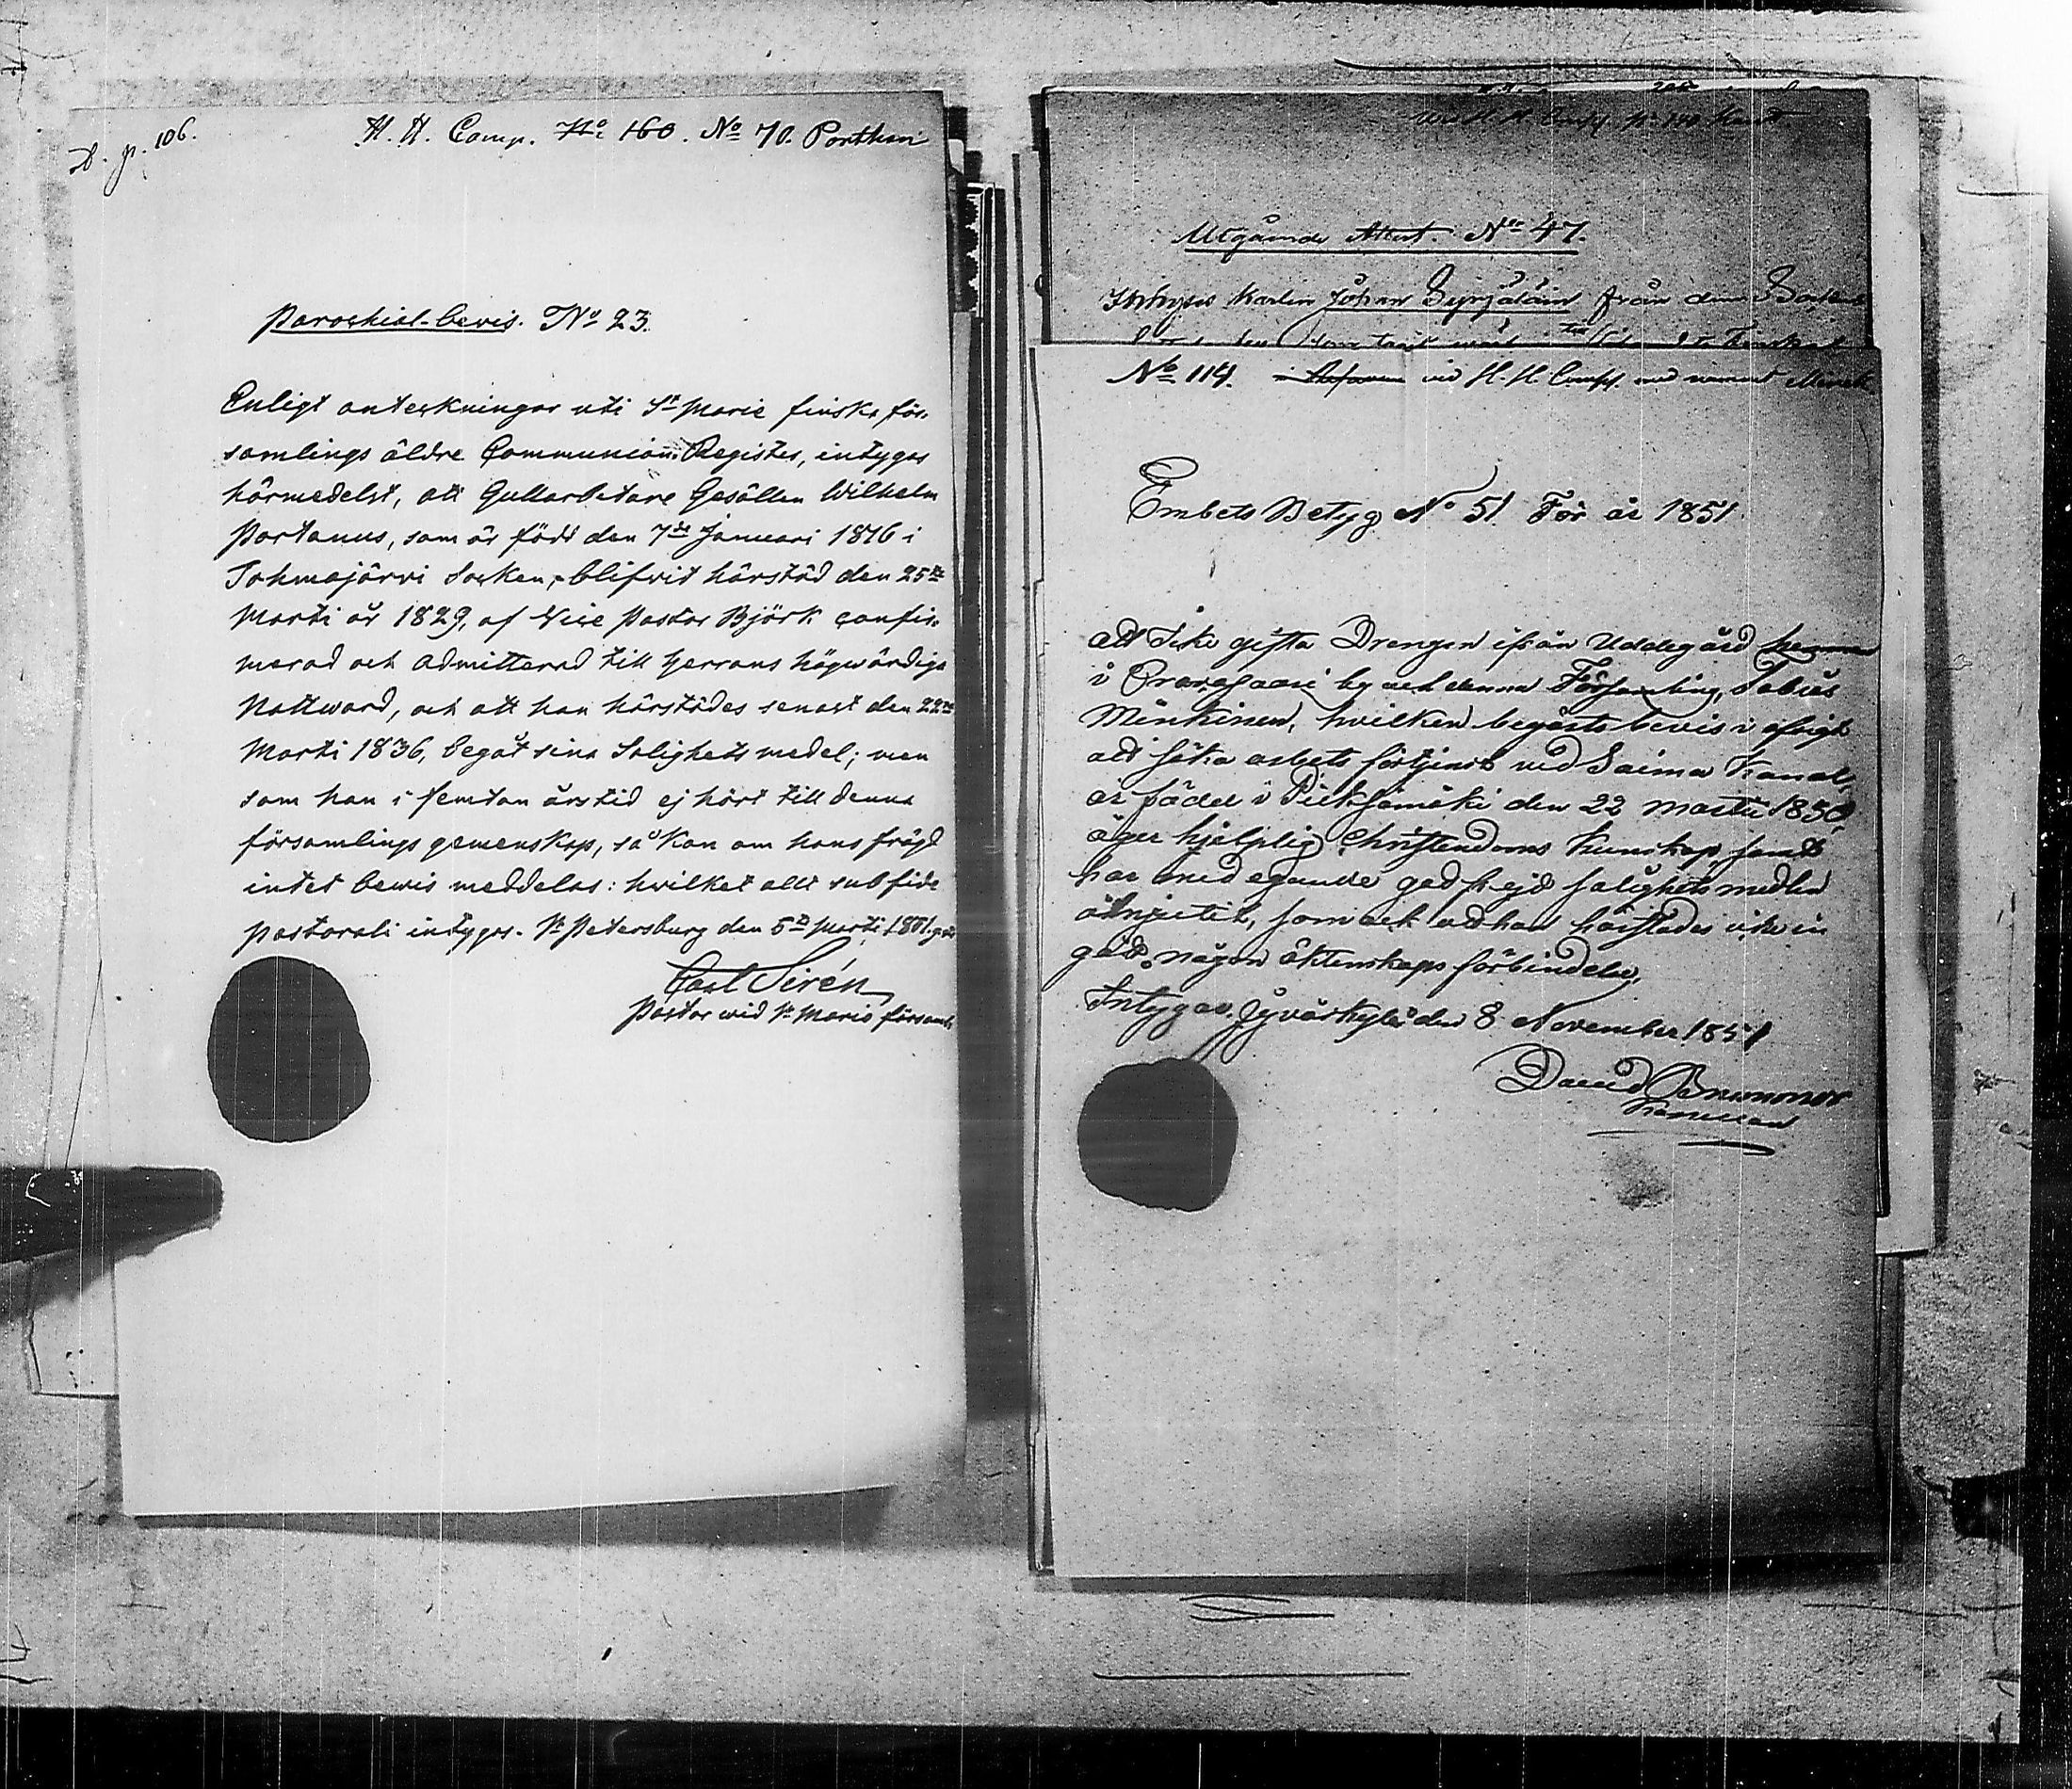 D. p. 106.
H. H. Comp. No 160. No 70. Porthan
Parochial-bevis. No 23.
Enligt anteckningar uti St Marie finska för-
samlings äldre Communion-Register, intygas
härmedelst, att Gullarbetare Gesällen Wilhelm
Portanus, som är född den 7de Januari 1816 i
Tohmajärvi Socken, blifvit härstäd den 25te
Marti år 1829, af Vice Pastor Björk confir-
merad och admitterad till Herrans högwärdiga
Nattward, och att han härstädes senast den 22re
Marti 1836, begåt sina Salighets medel; men
som han i femton års tid ej hört till denna
församlings gemenskap, så kan om hans frägd
intet bewis meddelas: hwilket allt sub fide
pastorali intygas. St Petersburg den 5te Marti 1851.
Carl Sirén
Pastor wid St Marie församl.
Utgående Attest. No 47.
Johan Syrjäläin från denna Socken
No 114. vid H. H. Comp. med namnet
Embets Betyg No 51 För år 1851
att Icke gifta Drengen ifrån Uddegård
i by och denna Församling, Tobias
Minkinen, hvilken begärt bevis i afsigt
att söka arbets förtjenst vid Saima Kanal,
är född i Pieksämäki den 22 Martii 1830,
äger hjelplig Christendoms Kunskap, samt
har med egande god frejd salighets medlen
åtnjutit, som ock att han härstädes icke in
gått någon äktenskaps förbindelse,
Intygas. Jyväskylä den 8 November 1851
David Brunnor